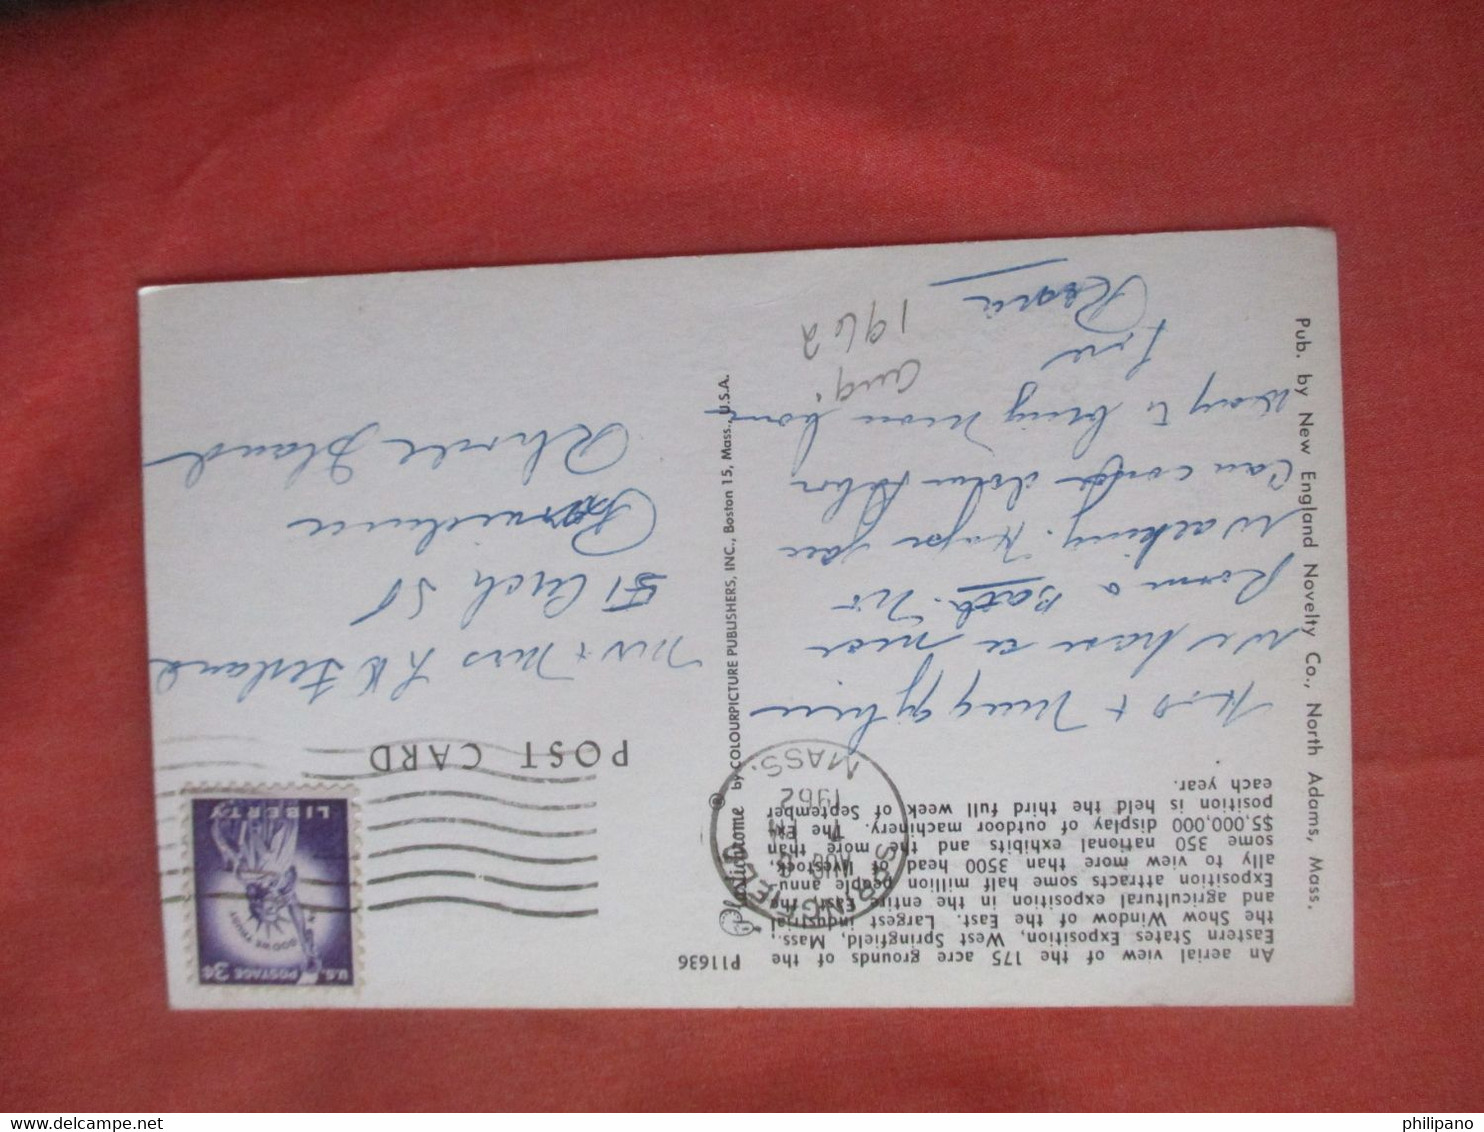 An aerial view of the 175 acre grounds of the
Eastern States Exposition, West Springfield, Mass.
the Show Window of the East. Largest industrial
and agricultural exposition in the entire East, the
Exposition attracts some half million people annu-
ally to view more than 3500 head of livestock,
some 350 national exhibits and the more than
$5,000,000 display of outdoor machinery. The Ex-
position is held the third full week of September
each year.
We have a nice
Room & Bath. No
Walking. Hope you
can come down
Way to bring mom home
Love
Rosie
Aug.
1962
Pub. by New England Novelty Co., North Adams, Mass.
P11636
Plastichrome ® by COLOURPICTURE PUBLISHERS, INC., Boston 15, Mass., U.S.A.
SPRINGFIELD
AUG
PM
1962
MASS.
POST CARD
U.S. POSTAGE 3¢
IN GOD WE TRUST
LIBERTY
Mr + Mrs
51 St
Providence
Rhode Island
philipano